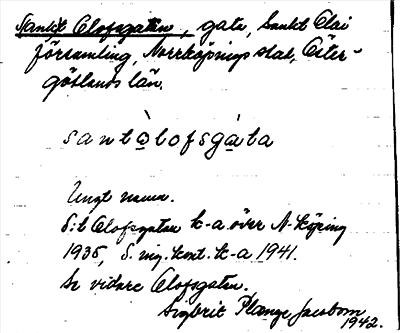 Sankt Olofsgatan, gata, Sankt Olai
församling, Norrköpings stad, Öster-
götlands län.
santòlofsgàta
Ungt namn.
S:t Olofsgatan k-a över N-köping
1935, S. ing. kont. k-a 1941.
Se vidare Olofsgatan.
Sigbrit Plænge Jacobson
1942.